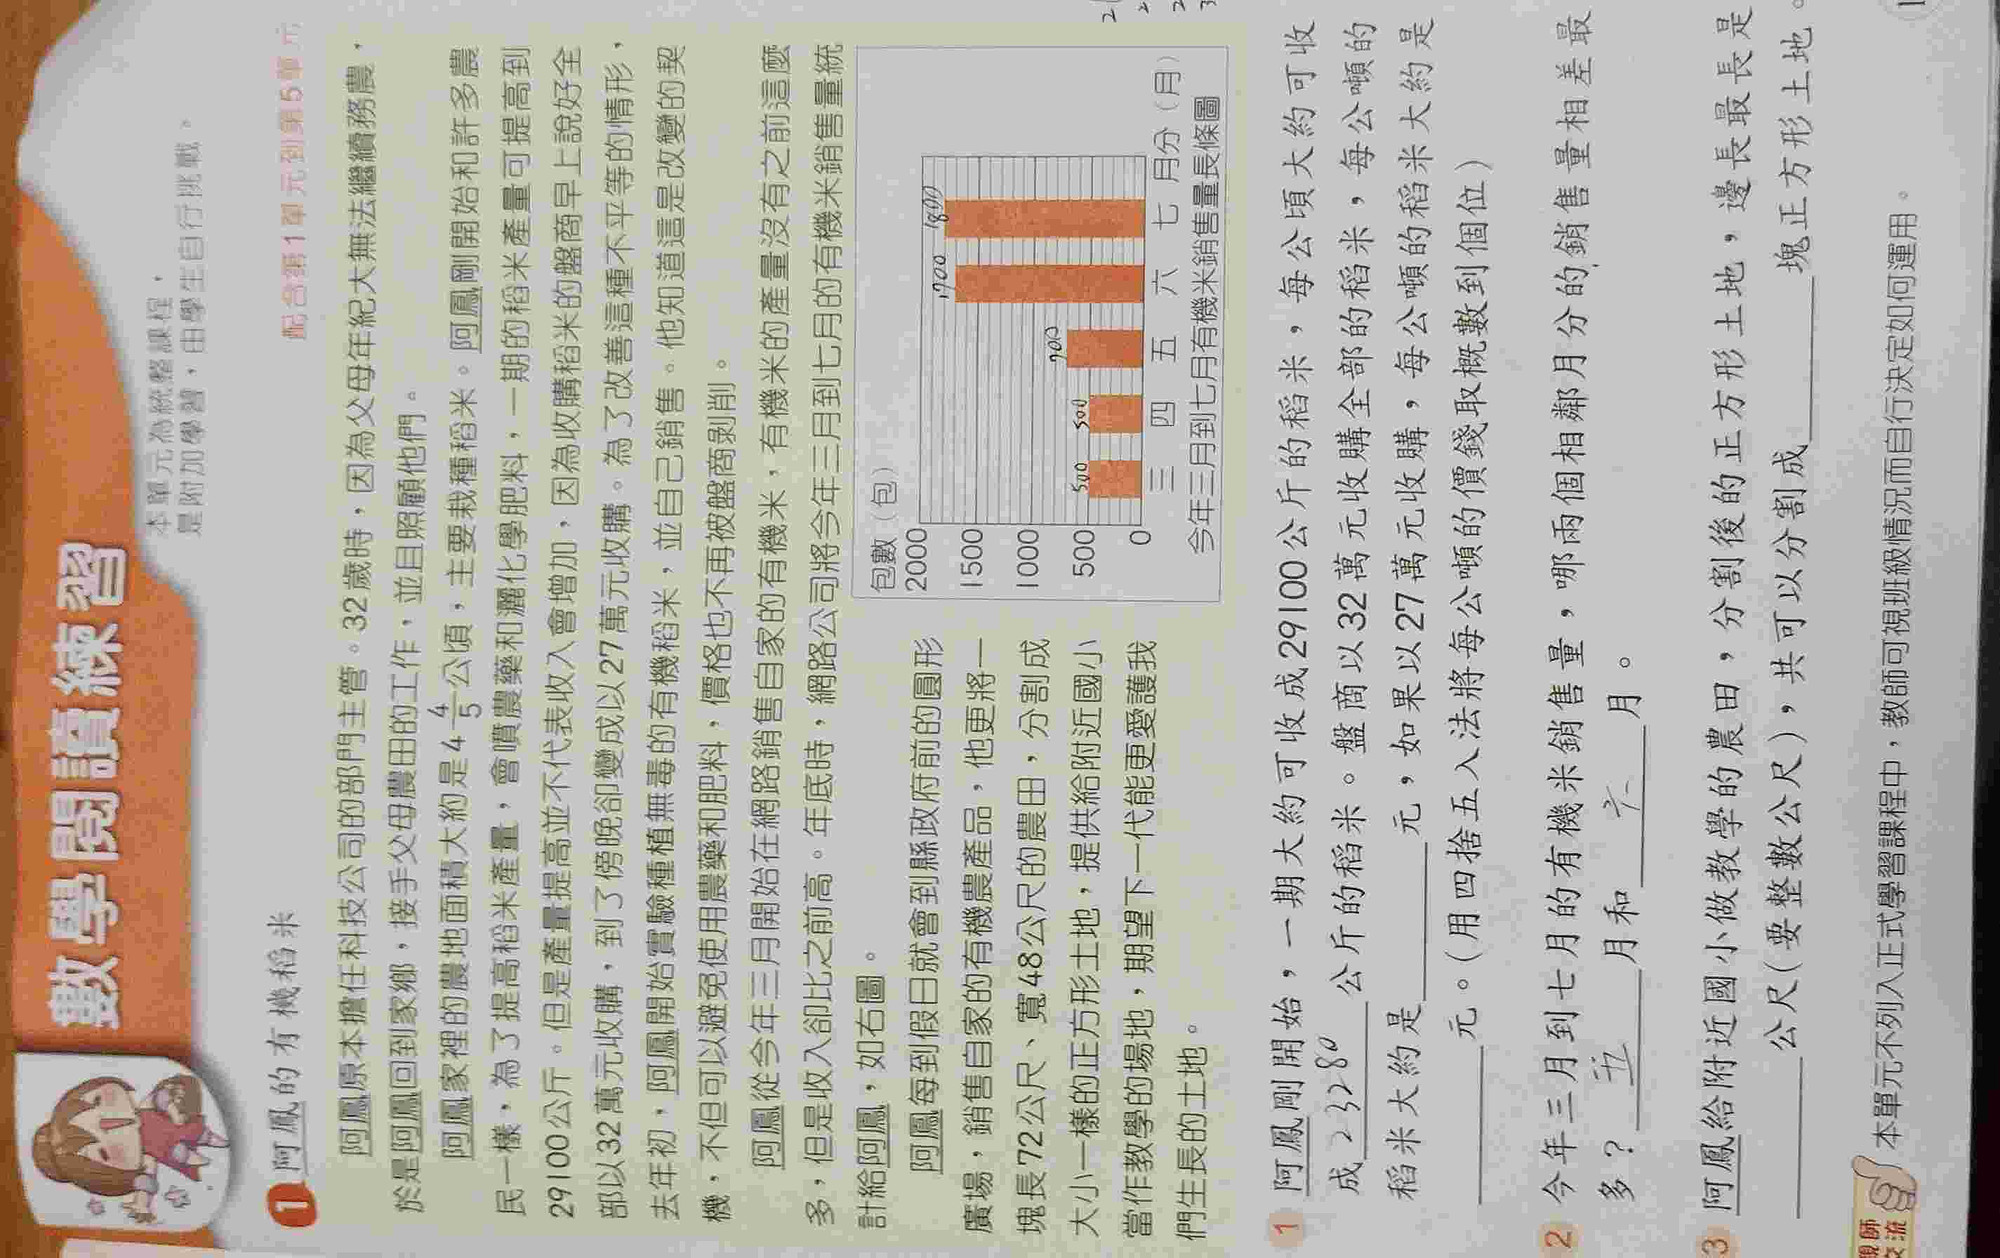 數學閱讀練習
本單元為統整課程，
是附加學習，由學生自行挑戰。
配合第1單元到第5單元
1 阿鳳的有機稻米
阿鳳原本擔任科技公司的部門主管。32歲時，因為父母年紀大無法繼續務農，
於是阿鳳回到家鄉，接手父母農田的工作，並且照顧他們。
阿鳳家裡的農地面積大約是4 4/5公頃，主要栽種稻米。阿鳳剛開始和許多農
民一樣，為了提高稻米產量，會噴農藥和灑化學肥料，一期的稻米產量可提高到
29100公斤。但是產量提高並不代表收入會增加，因為收購稻米的盤商早上說好全
部以32萬元收購，到了傍晚卻變成以27萬元收購。為了改善這種不平等的情形，
去年初，阿鳳開始實驗種植無毒的有機稻米，並自己銷售。他知道這是改變的契
機，不但可以避免使用農藥和肥料，價格也不再被盤商剝削。
阿鳳從今年三月開始在網路銷售自家的有機米，有機米的產量沒有之前這麼
多，但是收入卻比之前高。年底時，網路公司將今年三月到七月的有機米銷售量統
計給阿鳳，如右圖。
阿鳳每到假日就會到縣政府前的圓形
廣場，銷售自家的有機農產品，他更將一
塊長72公尺、寬48公尺的農田，分割成
大小一樣的正方形土地，提供給附近國小
當作教學的場地，期望下一代能更愛護我
們生長的土地。
包數（包）
2000
1500
1000
500
0
500
500
700
1700
1800
三 四 五 六 七 月分（月）
今年三月到七月有機米銷售量長條圖
1 阿鳳剛開始，一期大約可收成29100公斤的稻米，每公頃大約可收
成 23280 公斤的稻米。盤商以32萬元收購全部的稻米，每公噸的
稻米大約是 元，如果以27萬元收購，每公噸的稻米大約是
元。（用四捨五入法將每公噸的價錢取概數到個位）
2 今年三月到七月的有機米銷售量，哪兩個相鄰月分的銷售量相差最
多？ 五 月和 六 月。
3 阿鳳給附近國小做教學的農田，分割後的正方形土地，邊長最長是
公尺（要整數公尺），共可以分割成 塊正方形土地。
親師交流
本單元不列入正式學習課程中，教師可視班級情況而自行決定如何運用。